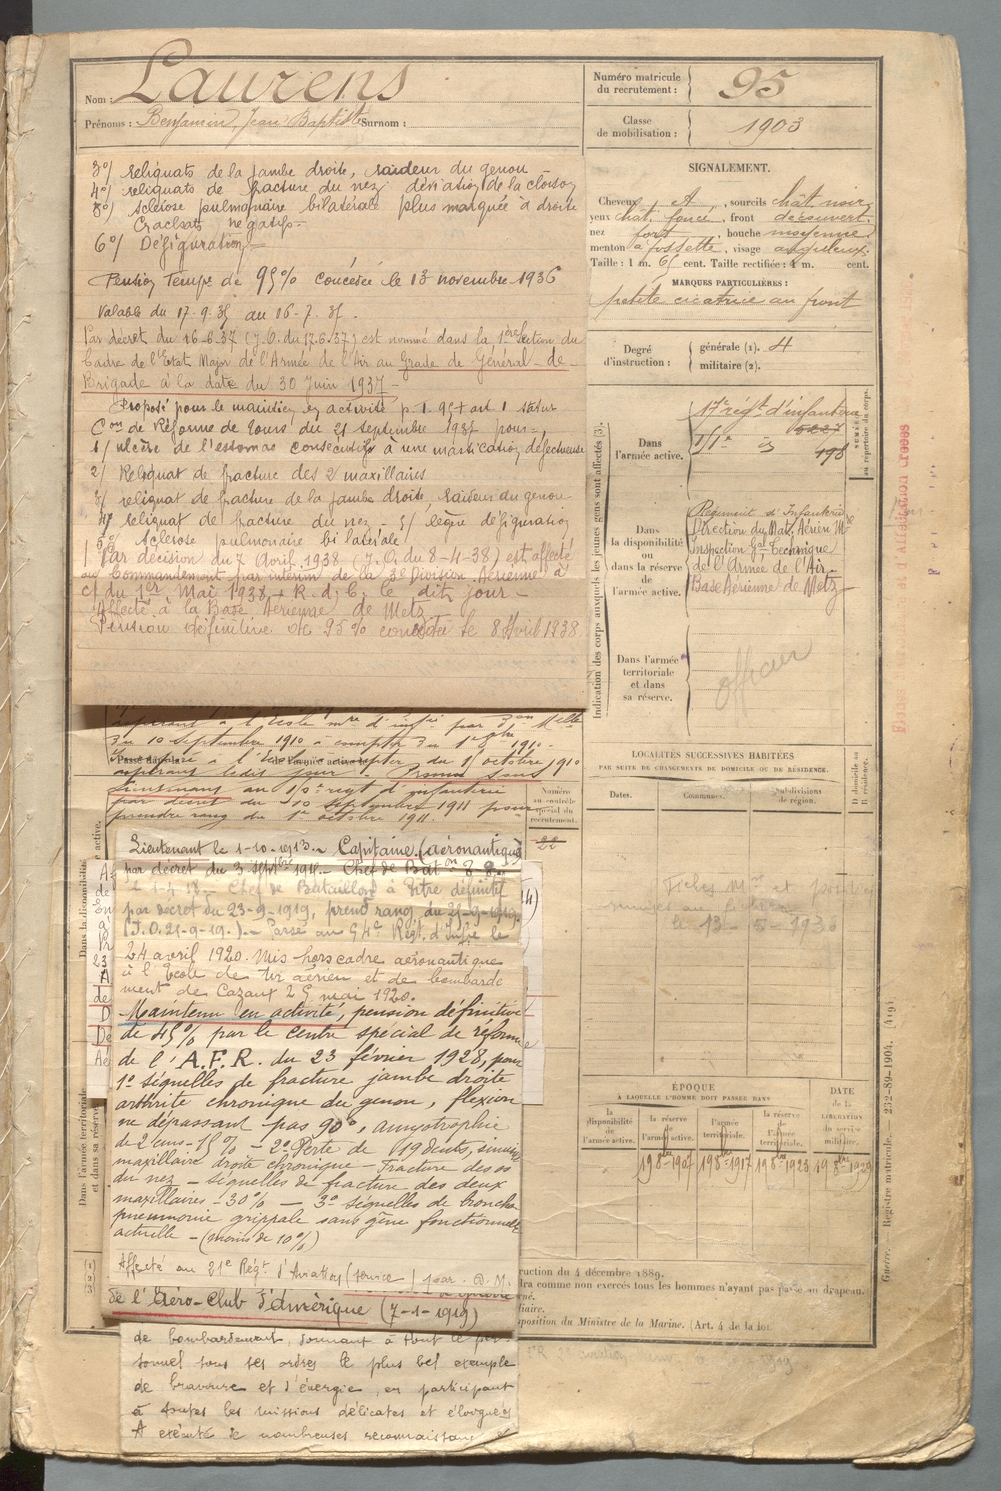 Nom : Laurens
Prénoms : Benjamin, Jean Baptiste Surnom :
Numéro matricule
du recrutement : 95
Classe
de mobilisation : 1903
3°/ reliquats de la jambe droite, raideur du genou
4°/ reliquats de fracture du nez déviation de la cloison
5°/ sclérose pulmonaire bilatérale plus marquée à droite
Crachats négatifs -
6°/ Défiguration
Pension Temp^re de 95% concédée le 13 novembre 1936
Valable du 17-9-35 au 16-7-37.
Par décret du 16-6-37 (J.O. du 17-6-37) est nommé dans la 1ère Section du
Cadre de l'Etat Major de l'Armée de l'Air au Grade de Général-de-
Brigade à la date du 30 Juin 1937 -
Proposé pour le maintien en activité p. i. 95+ art. 1 statur
Con de Réforme de Tours du 21 septembre 1937 pour -
1/ ulcère de l'estomac consécutifs à une mastication défectueuse
2/ Reliquat de fracture des 2 maxillaires
3/ reliquat de fracture de la jambe droite, raideur du genou
4/ reliquat de fracture du nez - 5/ légère défiguration
5° Sclérose pulmonaire bilatérale.
Par décision du 7 Avril 1938 (J.O. du 8-4-38) est affecté
au Commandement par interim de la 3e Division Aérienne à
c/ du 1er Mai 1938 + R.d.C. le dit jour -
Affecté à la Base Aérienne de Metz
Pension définitive de 95% concédée le 8 Avril 1938
SIGNALEMENT.
Cheveux A, sourcils chât noir
yeux chat. foncé, front découvert
nez fort, bouche moyenne
menton à fossette, visage anguleux
Taille : 1 m. 65 cent. Taille rectifiée : 1 m. cent.
MARQUES PARTICULIÈRES :
petite cicatrice au front
Degré
d'instruction :
générale (1). 4
militaire (2).
Indication des corps auxquels les jeunes gens sont affectés (3).
Dans
l'armée active.
17e régt d'infanterie
NUMÉRO
au répertoire du corps.
Dans
la disponibilité
ou
dans la réserve
de
l'armée active.
Régiment d'Infanterie
Direction du Mat. Aérien Mre
Inspection Gale Technique
de l'Armée de l'Air.
Base Aérienne de Metz
Dans l'armée
territoriale
et dans
sa réserve.
officier
LOCALITÉS SUCCESSIVES HABITÉES
PAR SUITE DE CHANGEMENTS DE DOMICILE OU DE RÉSIDENCE.
Dates.
Communes.
Subdivisions
de région.
D domicile ou
R résidence.
le 13-5-1936
du 10 septembre 1910 à compter du 1er 8bre 1910 -
du 1er octobre 1910
aspirant ledit jour - Promu Sous
Lieutenant au régt d'infanterie
par décret du 10 septembre 1911 pour
prendre rang du 1er octobre 1911.
Numéro
au contrôle
spécial du
recrutement.
22
Lieutenant le 1-10-1913 - Capitaine (aéronautique)
par décret du 3 septbre 1915 - Chef de Baton
1-4-18 - Chef de Bataillon à titre définitif
par décret du 23-9-1919, prend rang du 25-9-1919
(J.O. 25-9-19.) - Passé au 54e Régt. d'Infie le
24 avril 1920. Mis hors cadre aéronautique
à l'Ecole de tir aérien et de bombarde
ment de Cazaux 25 mai 1920.
Maintenu en activité, pension définitive
de 45% par le centre spécial de réforme
de l'A.F.R. du 23 février 1928, pour
1° séquelles de fracture jambe droite
arthrite chronique du genou, flexion
ne dépassant pas 90°, amyotrophie
de 2 cms - 15% - 2° Perte de 19 dents, sinusite
maxillaire droite chronique - Fracture des os
du nez - séquelles de fracture des deux
maxillaires - 30% - 3° séquelles de broncho
pneumonie grippale sans gêne fonctionnelle
actuelle - (moins de 10%)
Affecté au 21e Régt. d'Aviation (service)
de l'Aéro-Club d'Amérique (7-1-1919)
de bombardement, donnant à tout le per-
sonnel sous ses ordres le plus bel exemple
de bravoure et d'énergie, en participant
à toutes les missions délicates et éloignées
A exécuté de nombreuses reconnaissances
Dans la disponibilité
Dans l'armée territoriale
et dans sa réserve
ÉPOQUE
À LAQUELLE L'HOMME DOIT PASSER DANS
la
disponibilité
de
l'armée active.
la réserve
de
l'armée active.
l'armée
territoriale.
la réserve
de
l'armée
territoriale.
DATE
de la
LIBÉRATION
du service
militaire.
1 9bre 1907
1 9bre 1917
1 9bre 1923
1 9bre 1929
ruction du 4 décembre 1889.
dra comme non exercés tous les hommes n'ayant pas passé au drapeau.
position du Ministre de la Marine. (Art. 4 de la loi
Guerre. — Registre matricule. — 232-89-1904. (419)